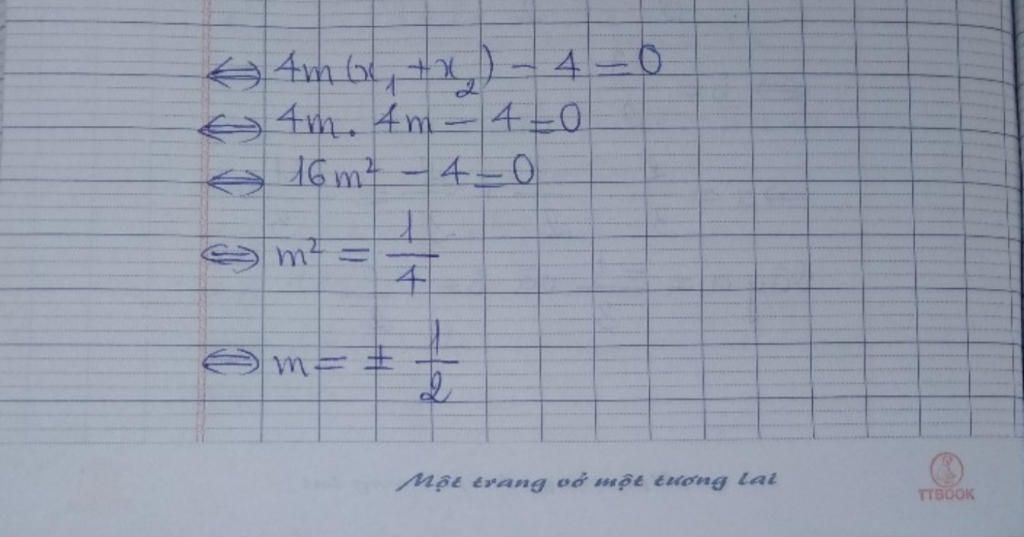 ⇔ 4m (x₁ + x₂) - 4 = 0
⇔ 4m. 4m - 4 = 0
⇔ 16m² - 4 = 0
⇔ m² = 1/4
⇔ m = ± 1/2
Một trang vở một tương lai
TTBOOK